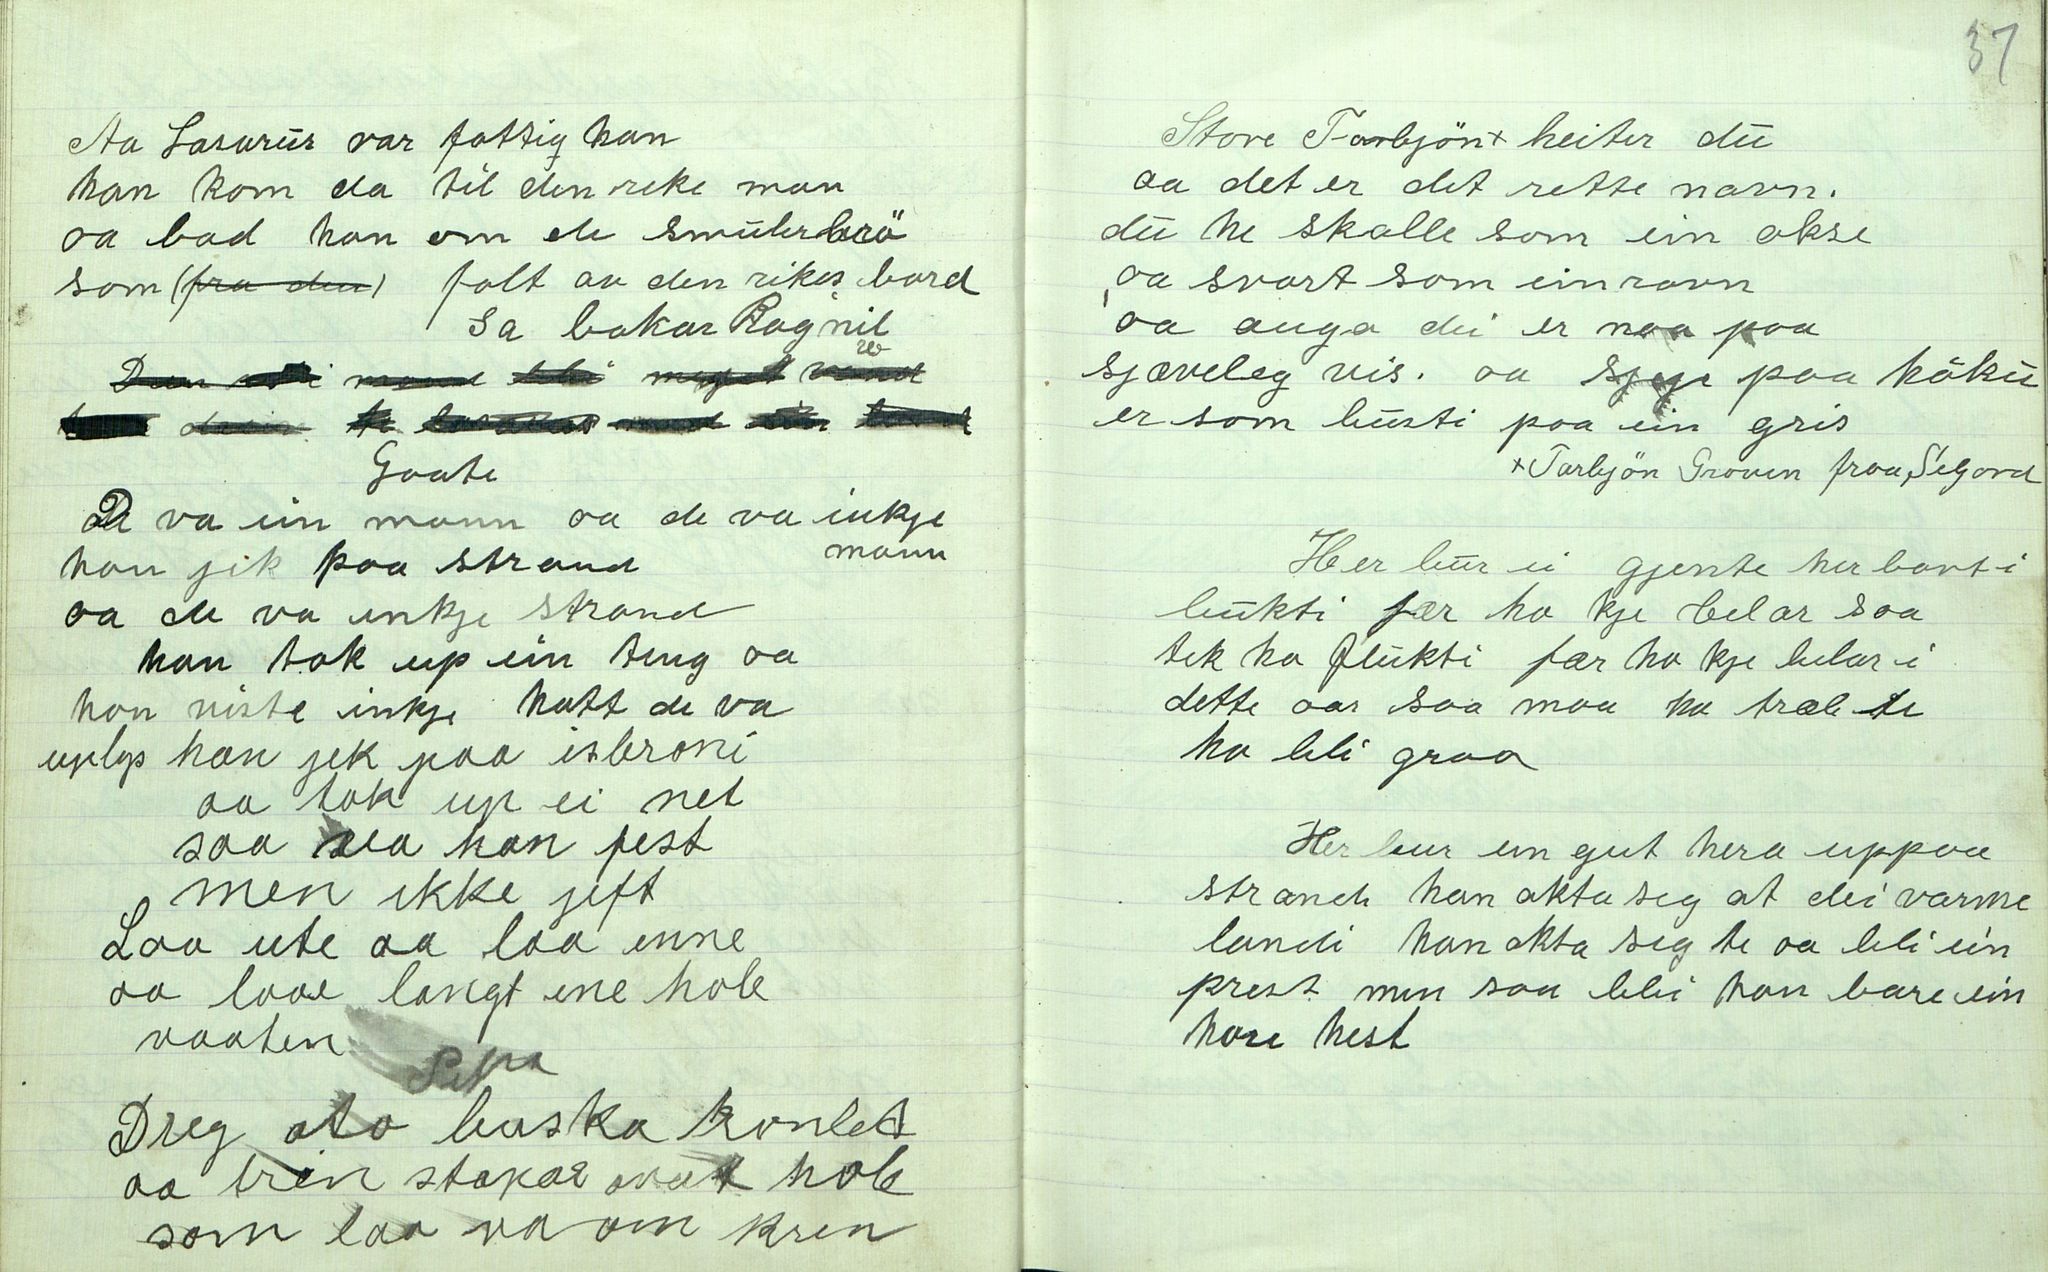 Aa Lasarus var fattig han
han kom da til den reke man
oa bad han om de smülerbrö
som (fra den) falt av den rikes bord
Sa bakar Ragnil
Goate
De va ein mann oa de va inkje
mann
han jik paa strand
oa de va inkje strand
han tok up ein ting oa
han viste inkje hatt de va
uplys han jek paa isbroni
oa tok up ei net
saa sea han fest
men ikke jeft
Laa ute aa laa inne
oa laae langt ine hole
vaaten
Dreg ato buska
oa trin stakar hole
som laa va om kren
37
Store Tarbjön+ heiter dü
oa det er det rette navn.
dü he skalle som ein okse
oa svart som ein ravn
oa auga dei er naa paa
sjæveleg vis. oa paa hökü
er som büsti paa ein gris
+Tarbjön Groven fraa Seljord
Her bür ei gjente her bort i
bükti fær ho kje belar saa
tek ho flükti fær ho kje belar i
dette aar saa maa ho træle te
ho bli graa
Her bur ein gut hera uppaa
strandi han akta seg at dei varme
landi han akta seg te oa bli ein
prest men saa blei han bare ein
hore hest